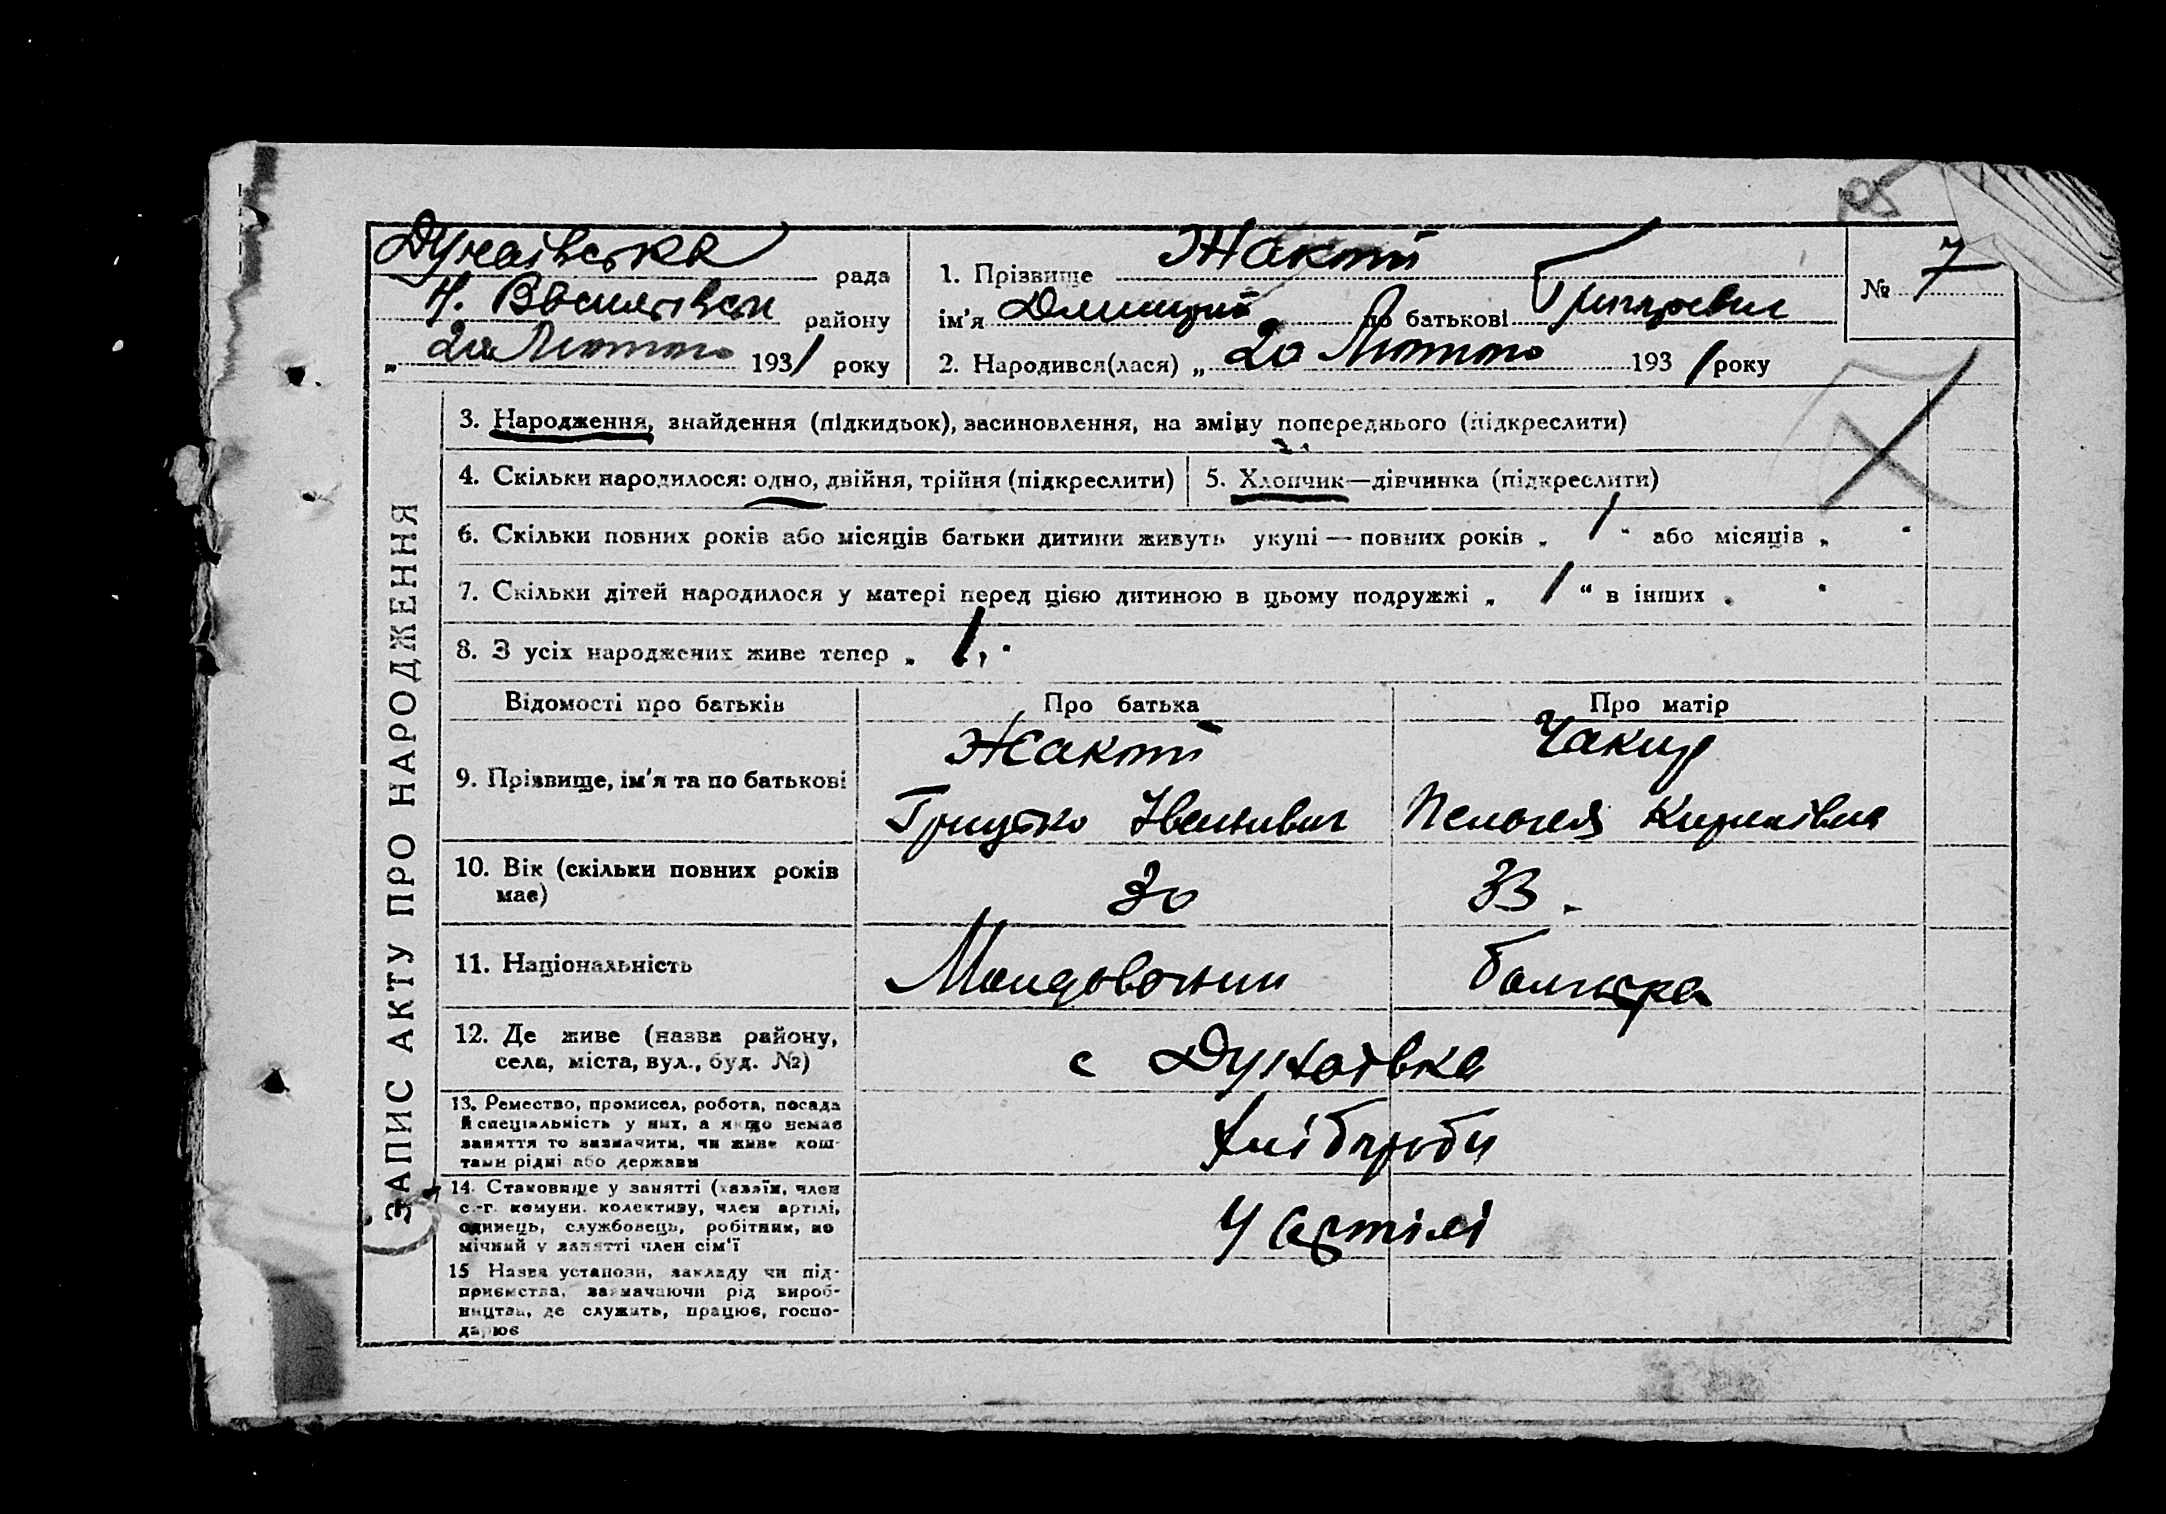 Дунаївська рада
Н. Василівськ району
„ 20 Лютого 1931 року
1. Прізвище Жакот
ім'я Дмитрий по батькові
2. Народився(лася) „ 20 Лютого 1931 року
№ 7
ЗАПИС АКТУ ПРО НАРОДЖЕННЯ
3. Народження, знайдення (підкидьок), засиновлення, на зміну попереднього (підкреслити)
4. Скільки народилося: одно, двійня, трійня (підкреслити)
5. Хлопчик—дівчинка (підкреслити)
6. Скільки повних років або місяців батьки дитини живуть укупі — повних років „ 1 “ або місяців „ “
7. Скільки дітей народилося у матері перед цією дитиною в цьому подружжі „ 1 “ в інших „ “
8. З усіх народжених живе тепер „ 1, “
Відомості про батьків
Про батька
Про матір
9. Прізвище, ім'я та по батькові
Жакот
Іванович
Чакир
Пелагея Кирилівна
10. Вік (скільки повних років
має)
30
33.
11. Національність
Молдованин
болгарка
12. Де живе (назва району,
села, міста, вул., буд. №)
с Дунаівка
13. Ремество, промисел, робота, посада
й спеціяльність у них, а якщо немає
заняття то зазначити, чи живе кош-
тами рідні або держави
Хлібороби
14. Становище у занятті (хазяїн, член
с.-г. комуни, колективу, член артілі,
одинець, службовець, робітник, по
мічний у занятті член сім'ї
У артілі
15 Назва установи, закладу чи під-
приємства, зазначаючи рід вироб-
ництва, де служить, працює, госпо-
дарює